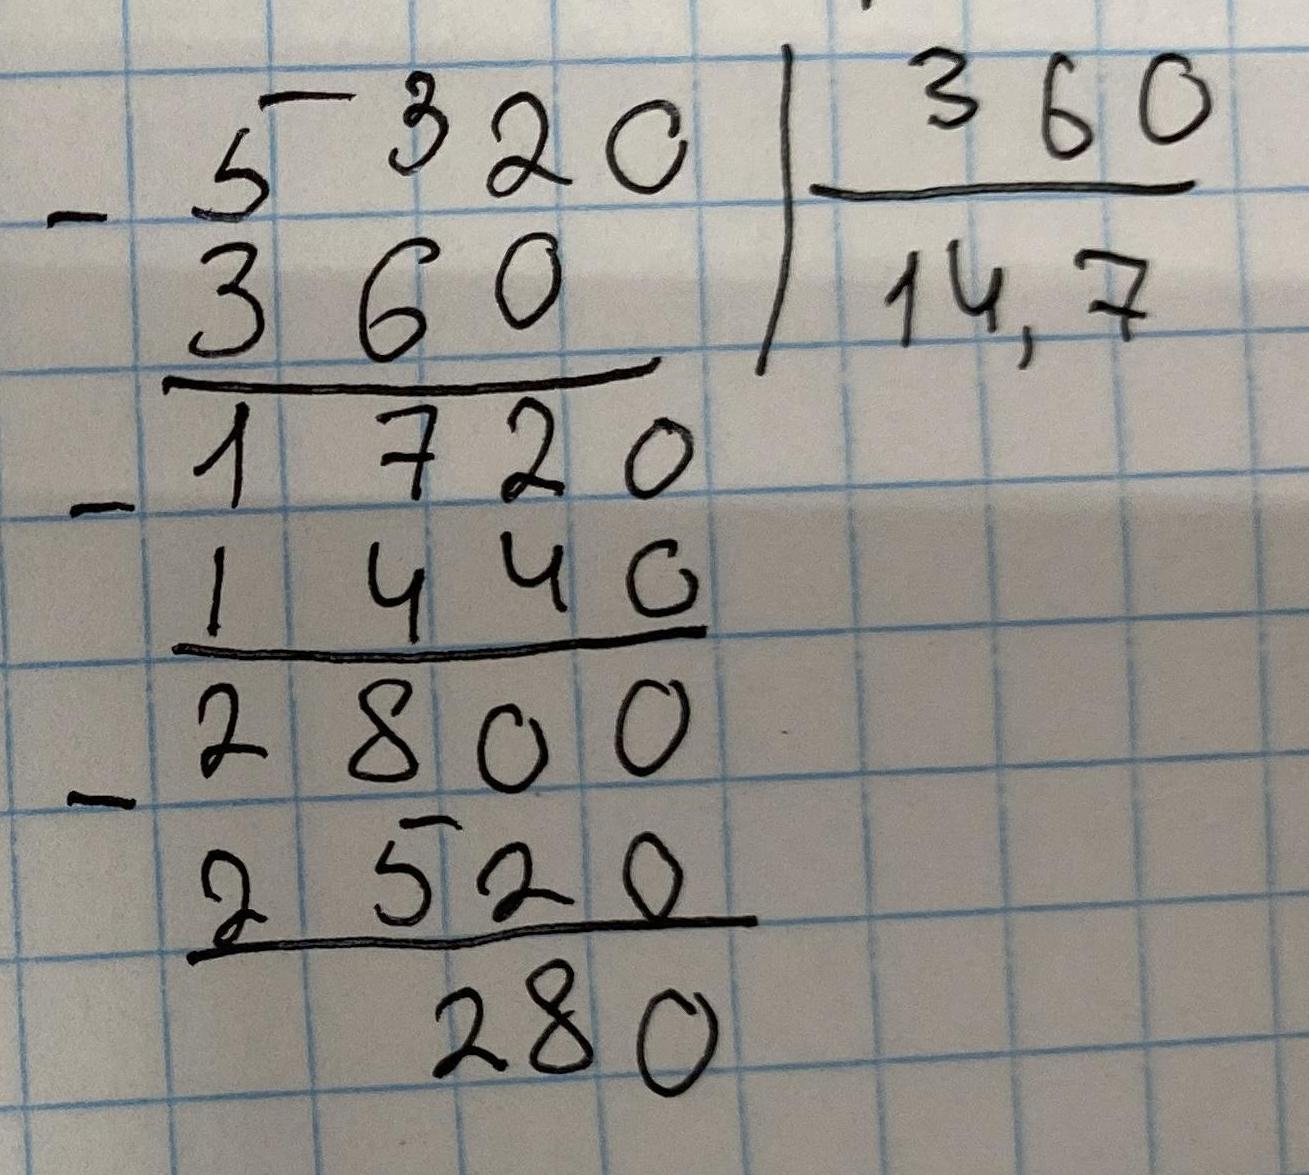 - 5320 | 360
360 | 14,7
1720
- 1440
2800
- 2520
280